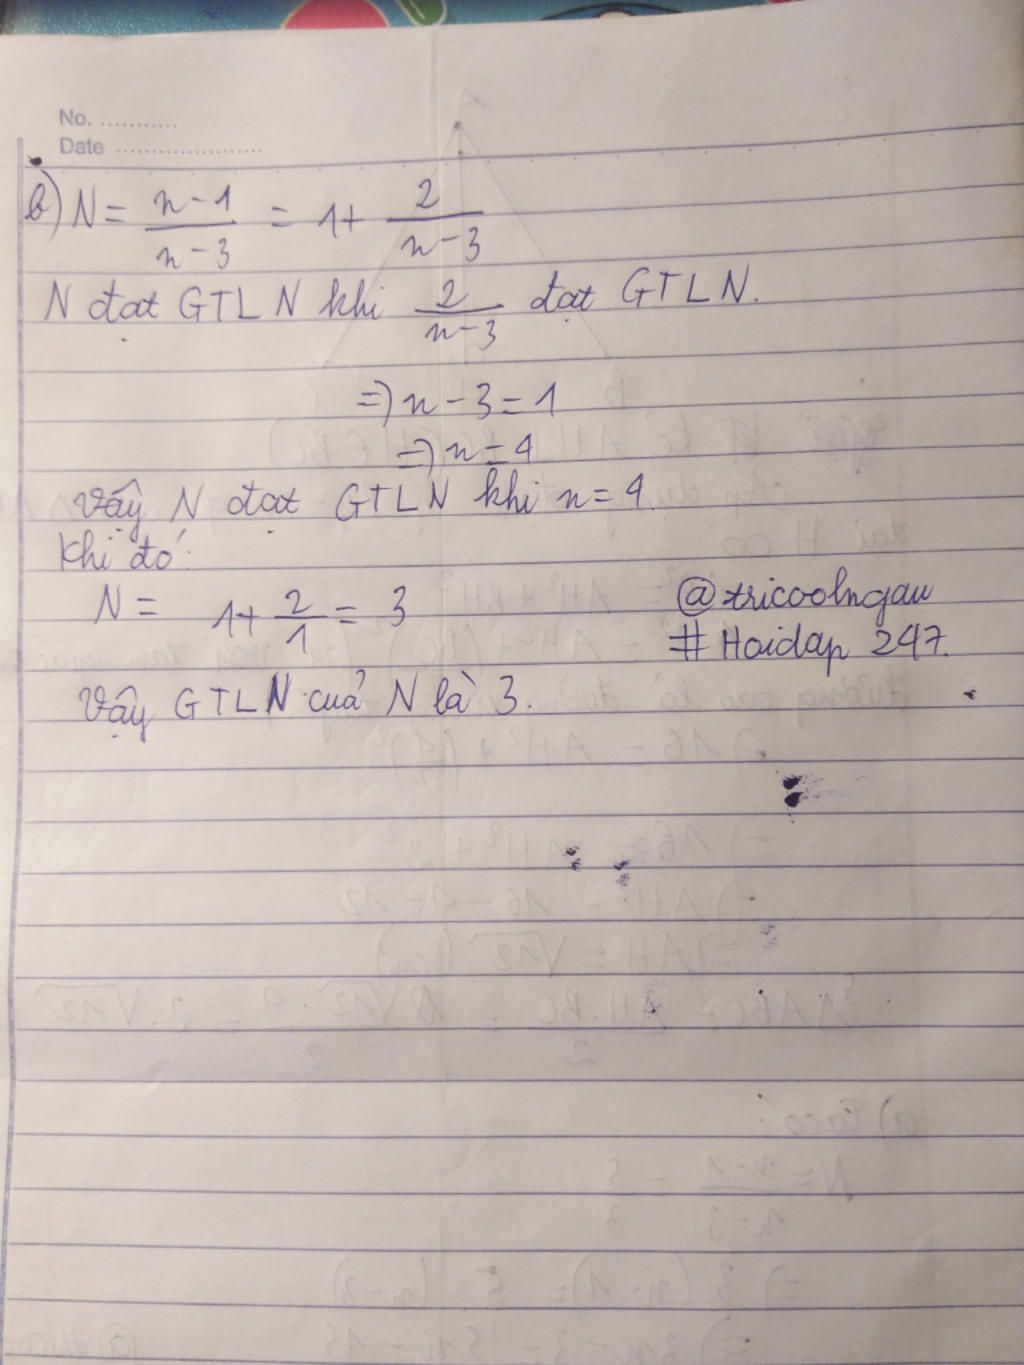 No. ...........
Date .....................
b) N = \frac{n-1}{n-3} = 1 + \frac{2}{n-3}
N đạt GTLN khi \frac{2}{n-3} đạt GTLN.
=> n - 3 = 1
=> n = 4
Vậy N đạt GTLN khi n = 4.
Khi đó:
N = 1 + \frac{2}{1} = 3
@tricoolngau
# Hoidap 247.
Vậy GTLN của N là 3.